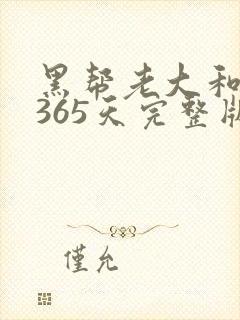 黑帮老大和
365天完整版
僅允